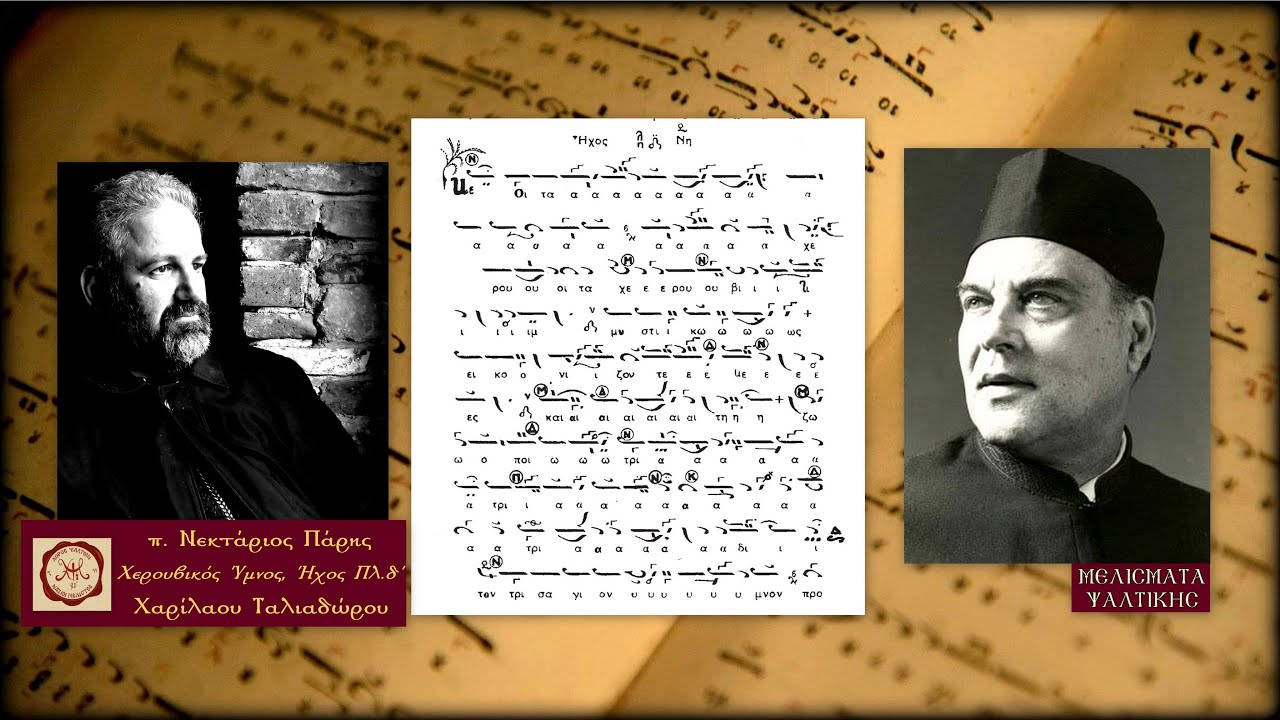 Ἦχος λ π δ Νη
Νε Οι τα α α α α α α α α
α α υ α α α α α α α χε
ρου ου οι τα χε ε ε ρου ου βι ι ι
ι ι ι ιμ μυ στι ι κω ω ω ω ως
ει κο ο νι ι ζον τε ε ε με ε ε ε
ες και αι αι αι αι αι τη η η ζω
ω ο ποι ω ω ω τρι α α α α α α
α τρι ι α α α α α α α α α
α α τρι α α α α α α δι ι ι
των τρι σα γι ον υ υ υ υ υ μνον προ
π. Νεκτάριος Πάρης
Χερουβικός Ύμνος, Ήχος Πλ.δ΄
Χαρίλαου Ταλιαδώρου
ΜΕΛΙΣΜΑΤΑ
ΨΑΛΤΙΚΗΣ